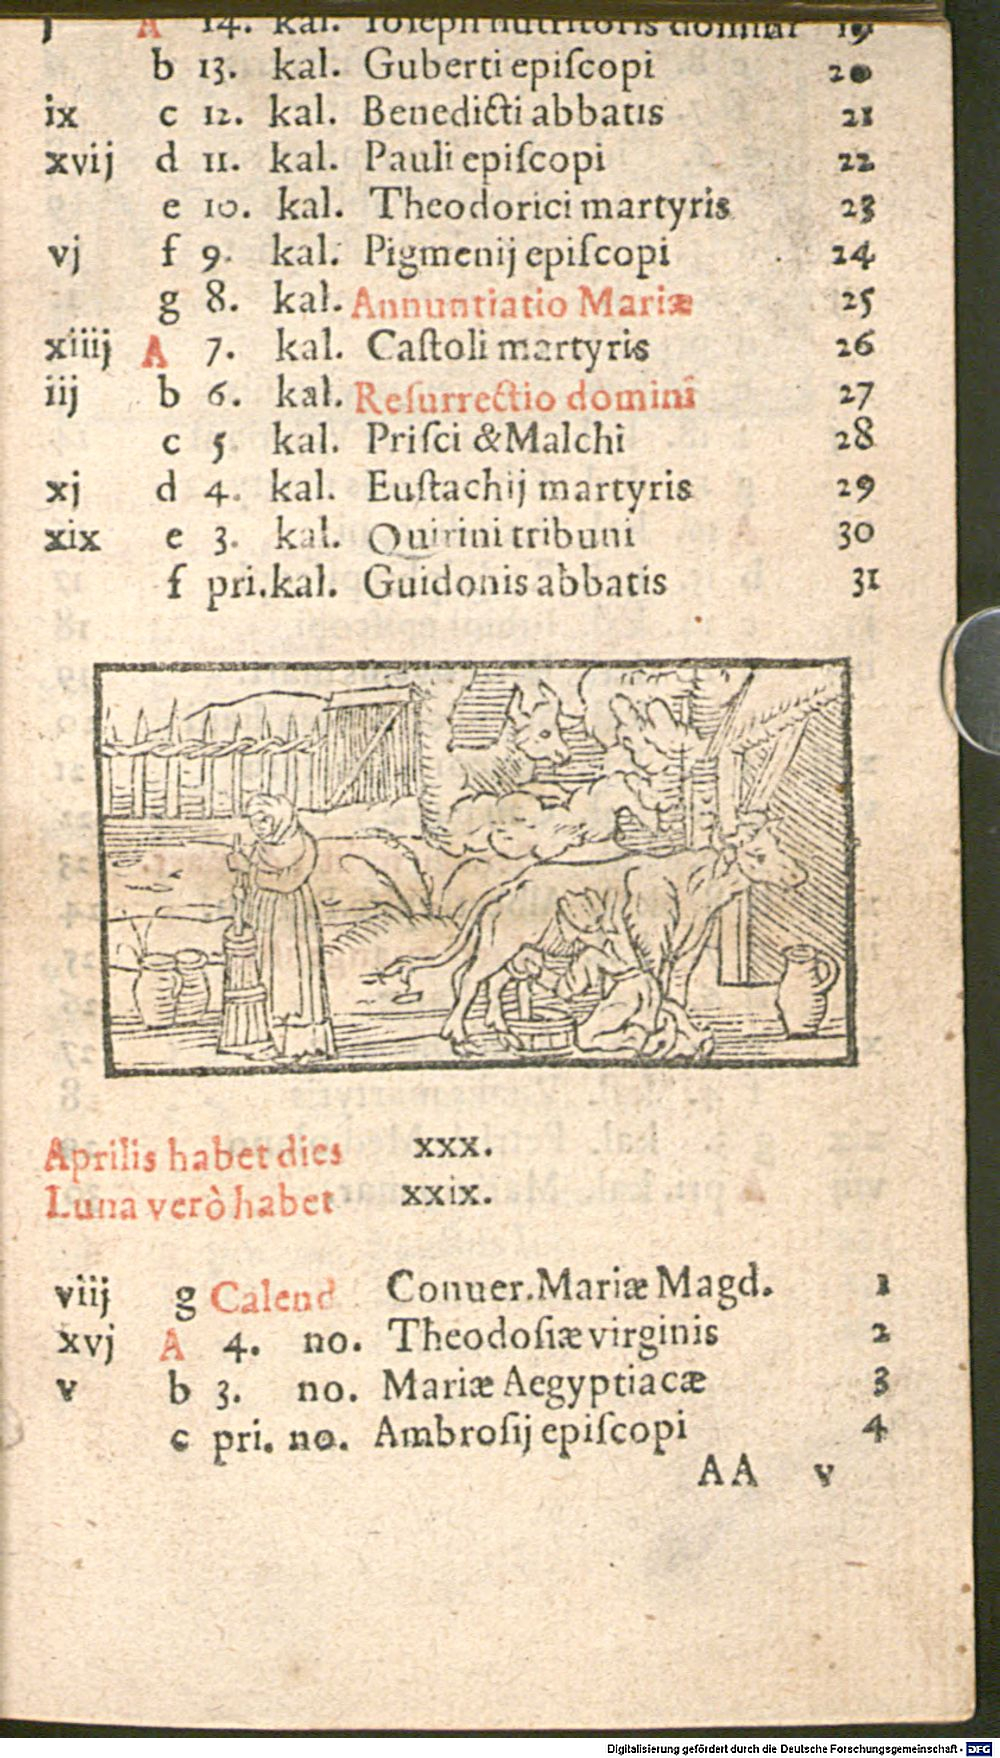 j A 14. kal. Ioseph nutritoris domini 19
b 13. kal. Guberti epiſcopi 20
ix c 12. kal. Benedicti abbatis 21
xvij d 11. kal. Pauli epiſcopi 22
e 10. kal. Theodorici martyris 23
vj f 9. kal. Pigmenij epiſcopi 24
g 8. kal. Annuntiatio Mariæ 25
xiiij A 7. kal. Caſtoli martyris 26
iij b 6. kal. Reſurrectio domini 27
c 5 kal. Priſci & Malchi 28
xj d 4. kal. Euſtachij martyris 29
xix e 3. kal. Quirini tribuni 30
f pri. kal. Guidonis abbatis 31
Aprilis habet dies xxx.
Luna verò habet xxix.
viij g Calend Conuer. Mariæ Magd. 1
xvj A 4. no. Theodoſiæ virginis 2
v b 3. no. Mariæ Aegyptiacæ 3
c pri. no. Ambroſij epiſcopi 4
AA v
Digitalisierung gefördert durch die Deutsche Forschungsgemeinschaft - DFG